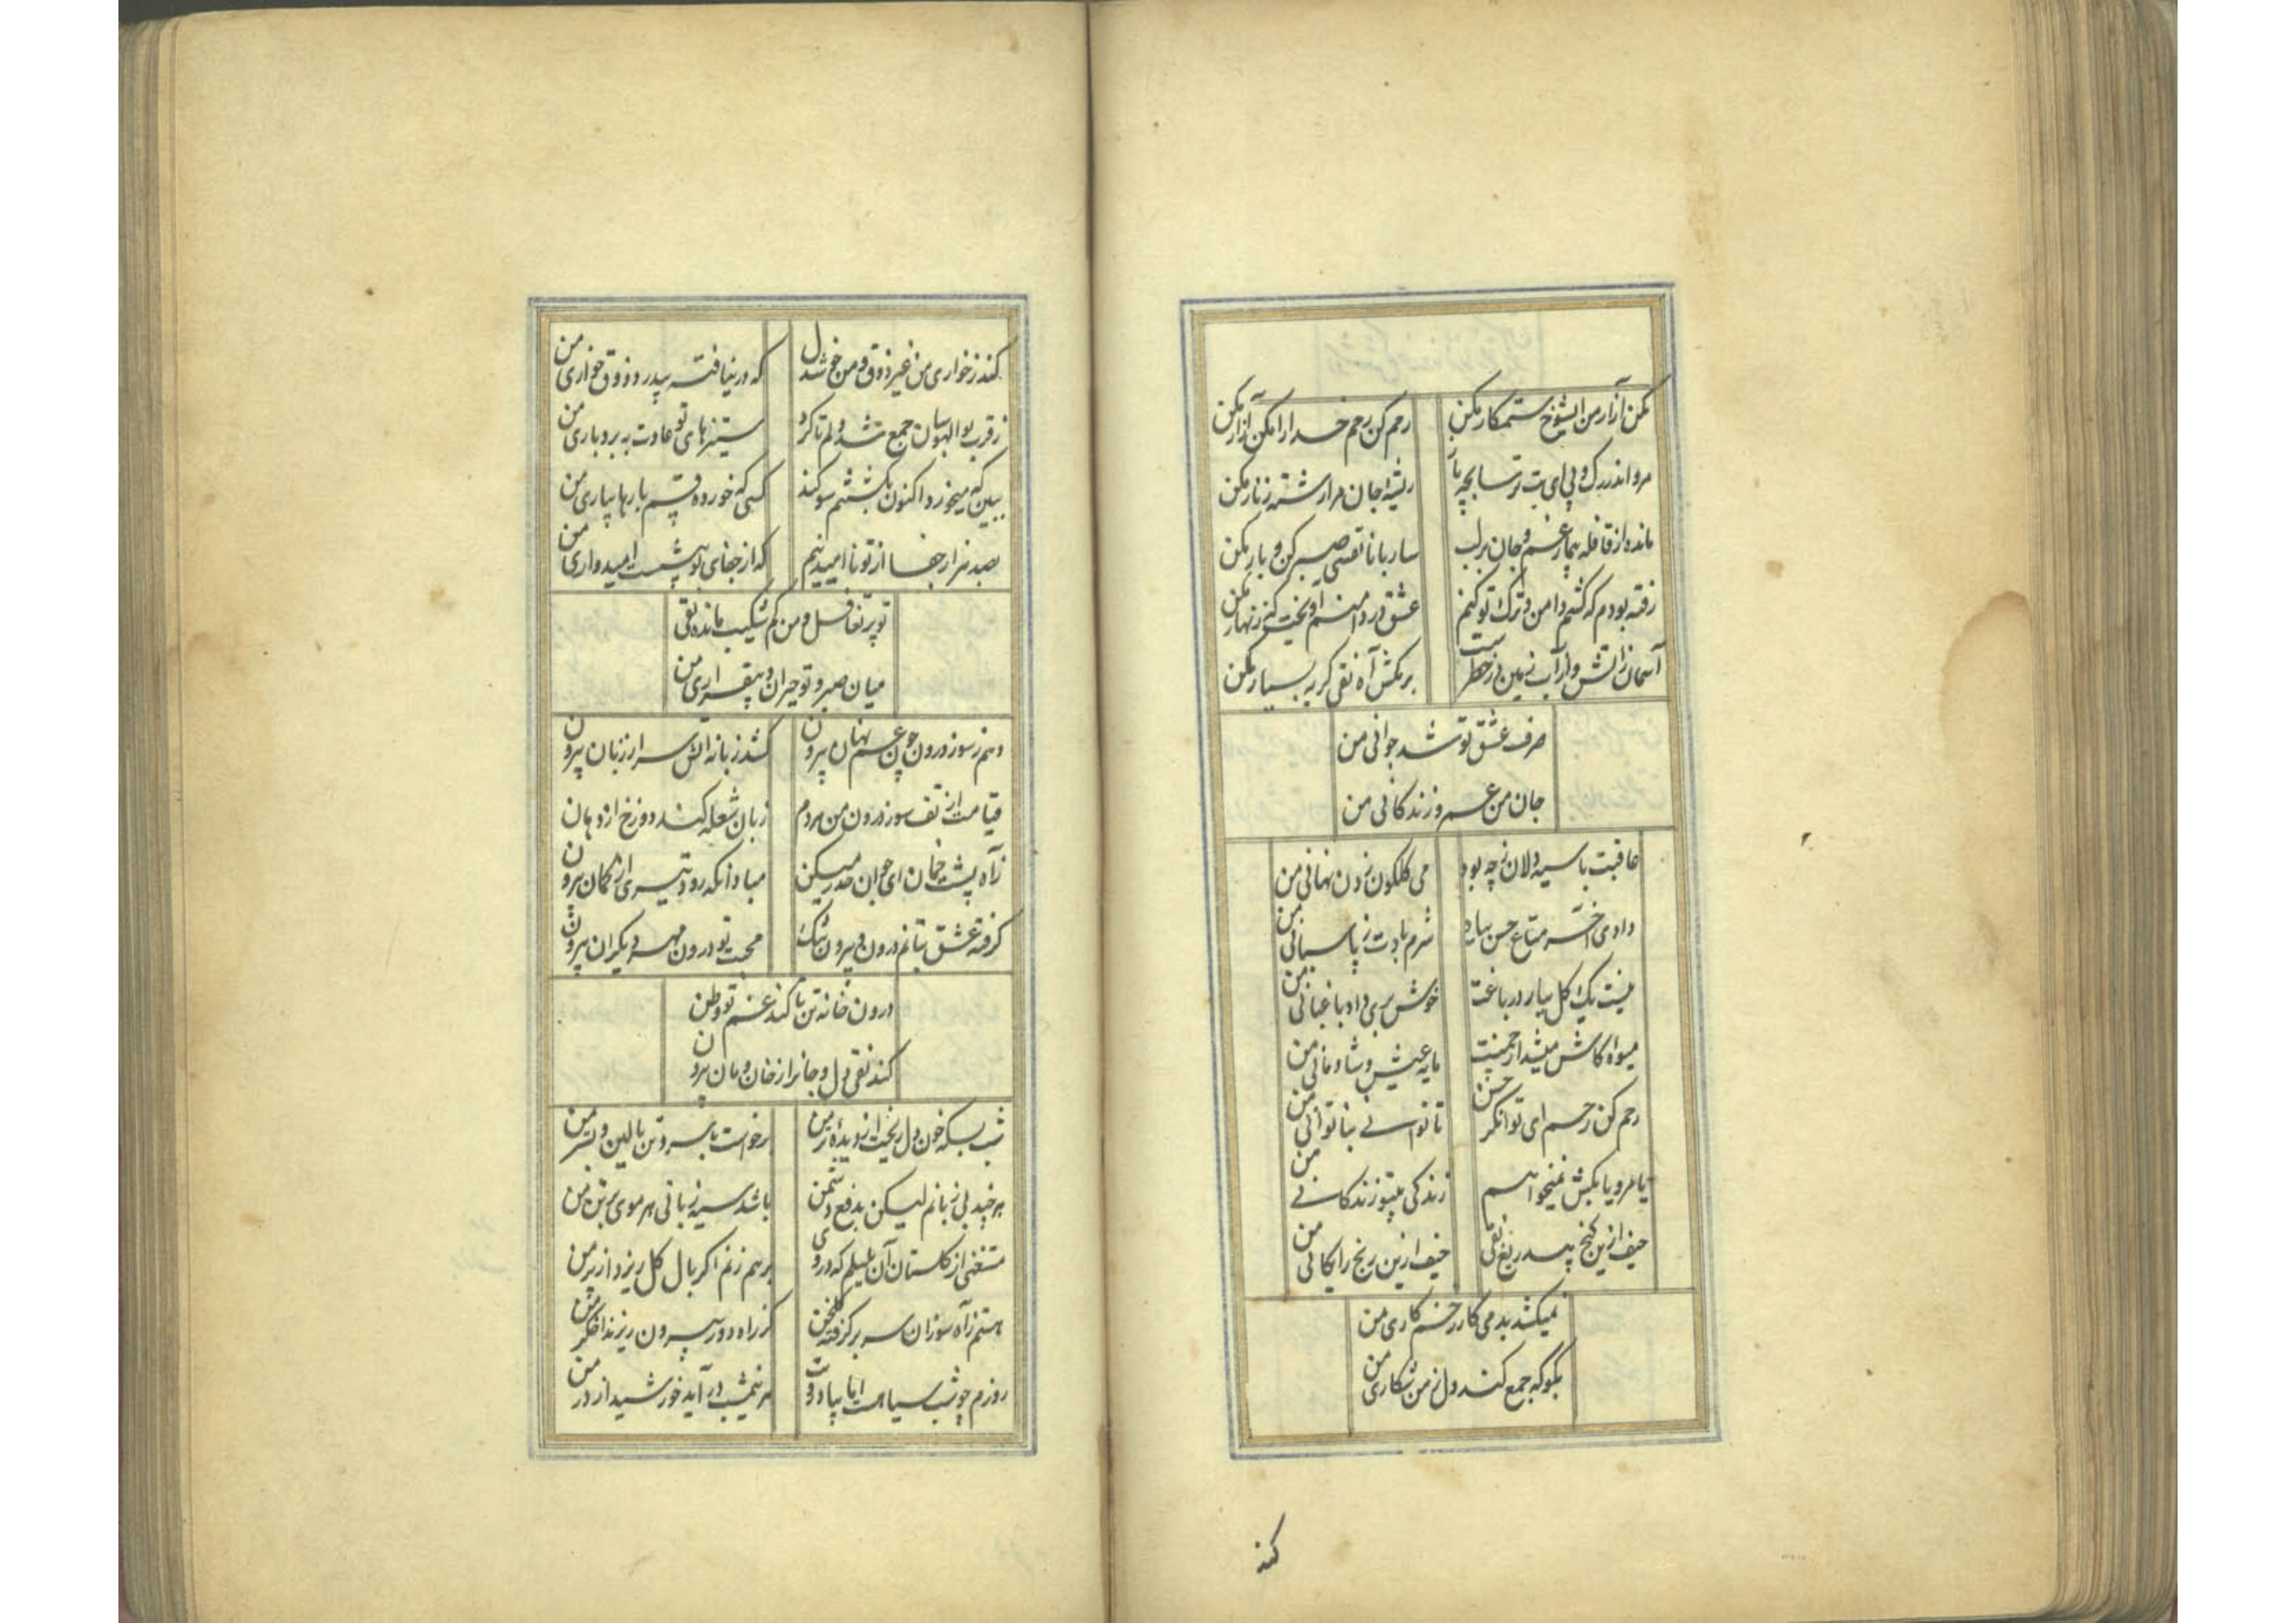 مکن آزار من ایشوخ ستمکار مکن رحم کن رحم خدارا مکن آزار مکن
مرو اندر رک و پی ای بت ترسا بچه باز ریشهٔ جان مرا رشته زنار مکن
مانده از قافله بیمار غم و جان بر لب ساربانا نفسی صبر کن و بار مکن
رفته بودم که کشم دامن و ترک تو کنم عشق در دامنم آویخت که زنهار مکن
آسمان زاتش و از آب زمین در خطرست برمکش آه نقی کریه بسیار مکن
صرف عشق تو شد جوانی من
جان من عمر و زندکانی من
عاقبت باسیه دلان زچه بود می کلکون زدن نهانی من
دادی آخر متاع حسن بباد شرم بادت ز پاسبانی من
نیست یک کل ببار در باغت خوش بری داد باغبانی من
میوه کاش میشد از چمنت مایه عیش و شادمانی من
رحم کن رحم ای توانکر حسن تا توانی بناتوانی من
یا مرو یا بکش نمیخواهم زندکی بیتو زندکانی من
حیف ازین کنج بیدریغ نقی حیف ازین رنج رایکانی من
نمیکشد بدمی کار زخم کاری من
بکو که جمع کند دل ز من شکاری من
کند
کند ز خواری من غیر ذوق و من خوشدل که در نیافته بیدرد ذوق خواری من
ز قرب بوالهوسان جمع شد دلم تا کرد ستیزهای تو عادت به بردباری من
ببین که میخورد اکنون بکشتنم سوکند کسی که خورده قسم بارها بیاری من
بصد هزار جفا از تو ناامید نیم که از جفای تو بیشست امیدواری من
تو پرتغافل و من کم شکیب مانده نقی
میان صبر و تو حیران و بیقراری من
دهم ز سوز درون چون غم نهان بیرون کشد زبانه آتش سر از زبان بیرون
قیامت از تف سوز درون من هردم زبان شعله کند دوزخ از دهان
ز آه پشت خمان ای جوان حذر میکن مباد آنکه رود تیری از کمان بیرون
کرفته عشق بتانم درون و بیرون تنک محبت تو درون مهر دیکران بیرون
درون خانه تن تا کند غم تو وطن
کند نقی دل و جانرا ز خان و مان بیرون
شب بسکه خون دل ریخت از دیدهٔ تر من برخواست با سر و تن بالین و بستر من
هرچند بی زبانم لیکن بدفع دشمن باشد سیه زبانی هر موی بر تن من
مستغنی از کلستان آن بلبلم که در وی برهم زنم اکر بال کل ریزد از پر من
هستم ز آه سوزان سر برکرفته کلخن کز راه دود بیرون ریزند اخکر من
روزم چو شب سیاهست آیا بیاد رویت هر نیمشب در آید خورشید از در من